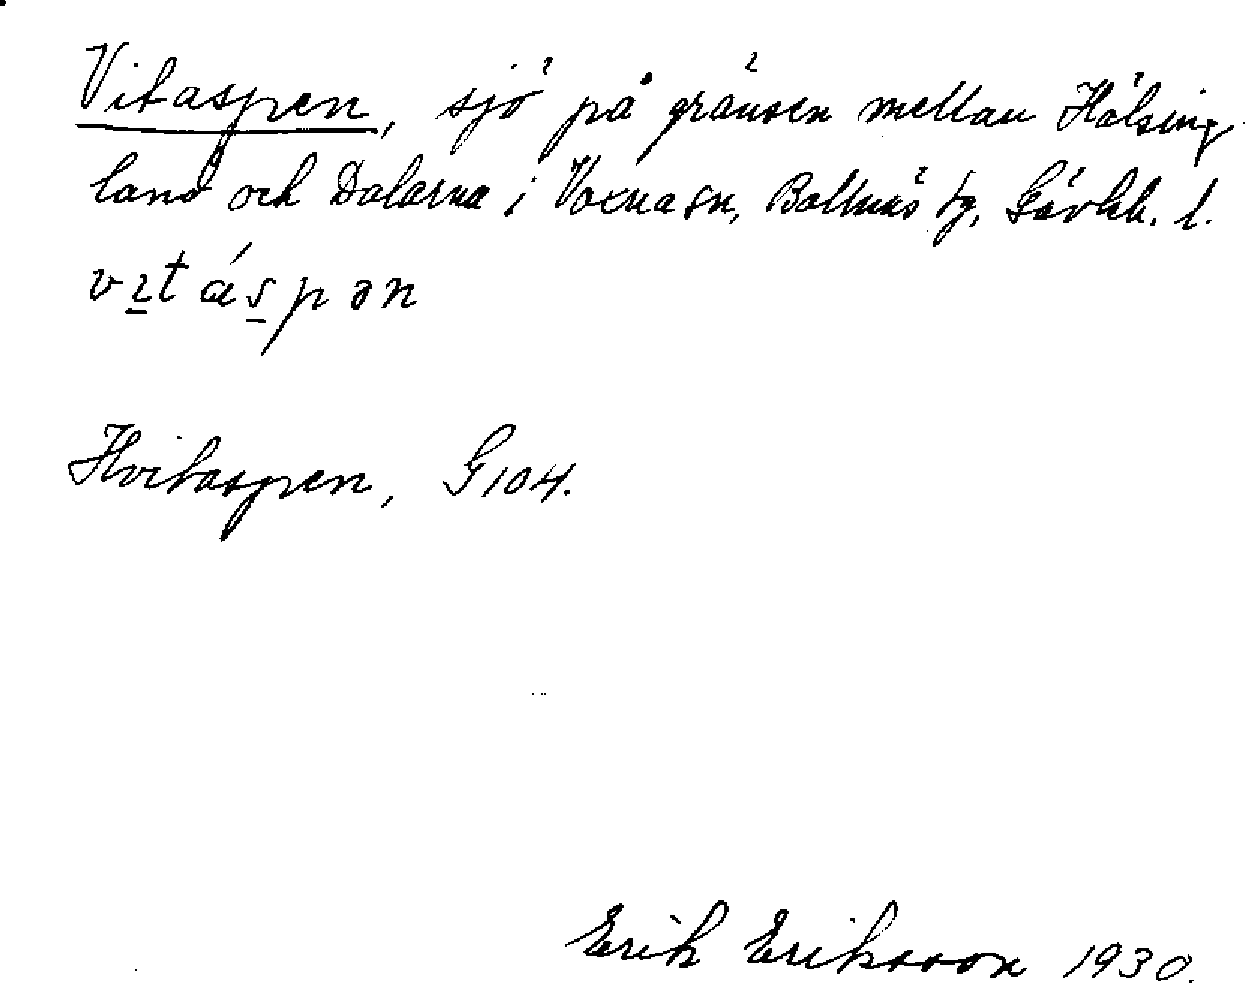 Vitaspen, sjö på gränsen mellan Hälsing-
land och Dalarna i Voxna sn, Bollnäs tg, Gävleb. l.
vɪtáspən
Hvitaspen, G104.
Erik Eriksson 1930.